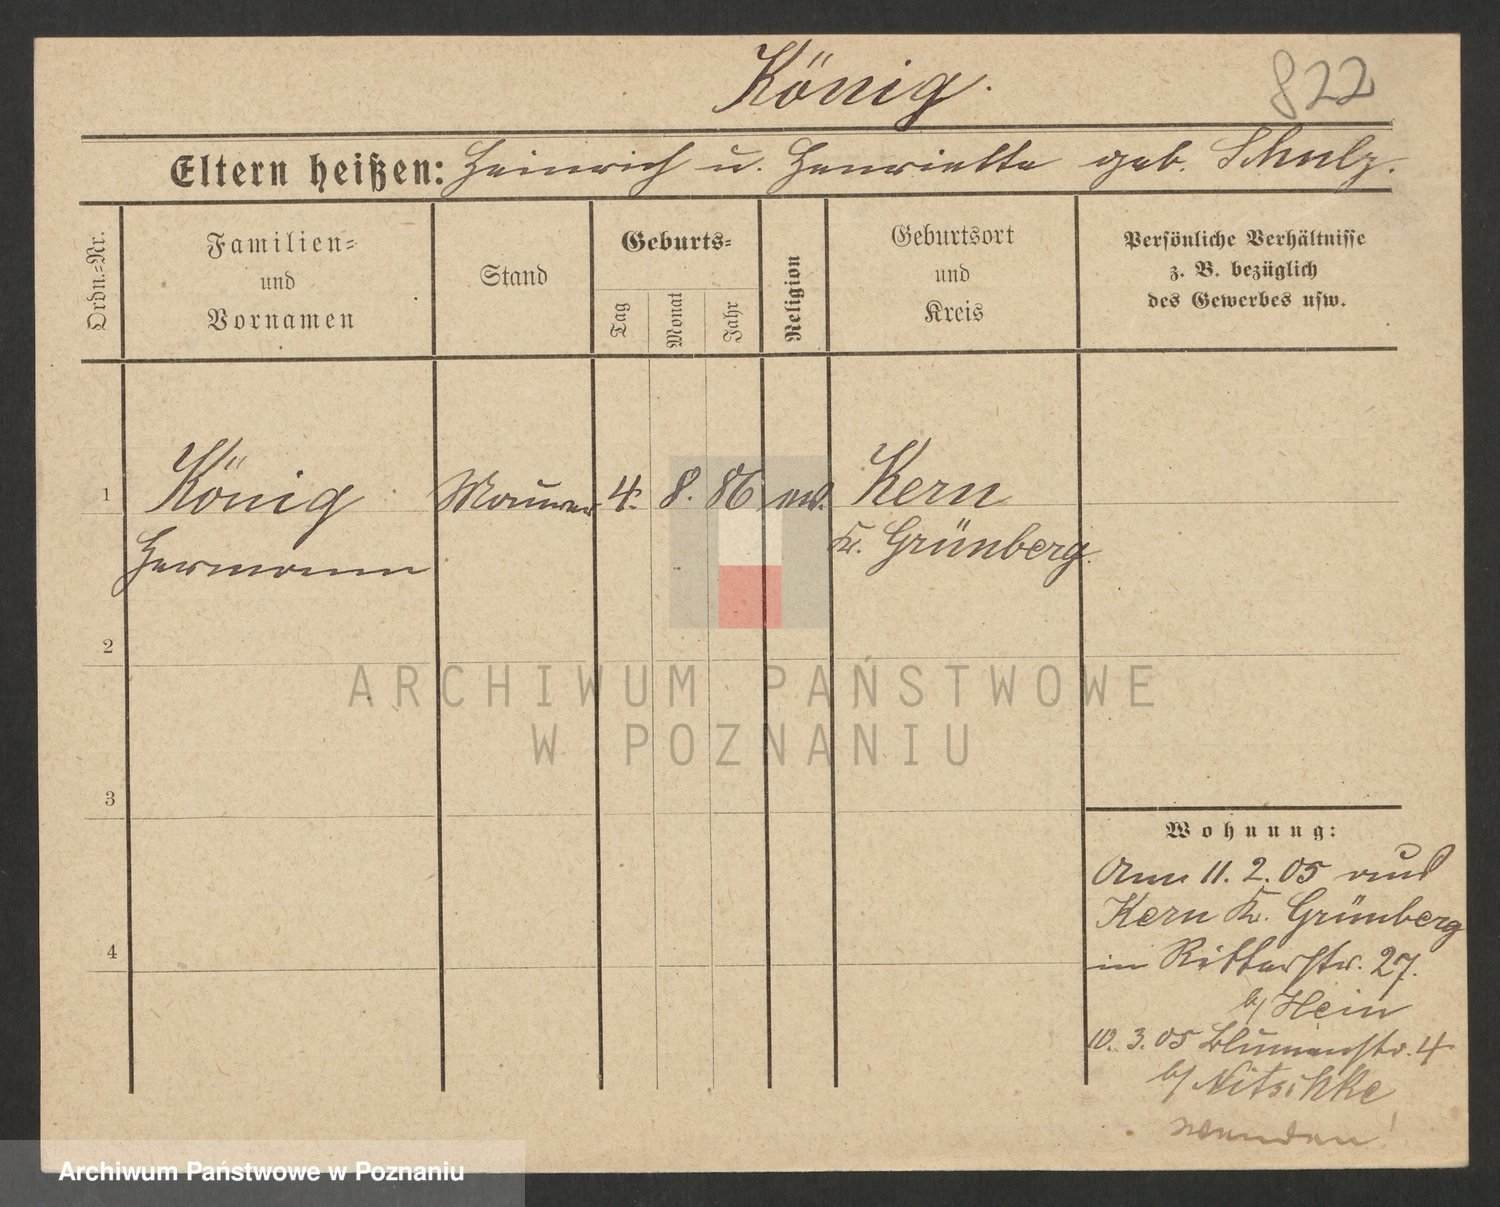 König.
822
Eltern heißen: Heinrich u. Henriette geb. Schulz.
Ordn.=Nr.
Familien=
und
Vornamen
Stand
Geburts=
Tag
Monat
Jahr
Religion
Geburtsort
und
Kreis
Persönliche Verhältnisse
z. B. bezüglich
des Gewerbes usw.
1
König
Hermann
Maurer
4. 8. 86
ev.
Kern
Kr. Grünberg.
2
ARCHIWUM PAŃSTWOWE
W POZNANIU
3
4
Wohnung:
Am 11. 2. 05 aus
Kern Kr. Grünberg
in Ritterstr. 27.
b/ Hein
10. 3. 05 Blumenstr. 4
b/ Nitschke
wenden!
Archiwum Państwowe w Poznaniu